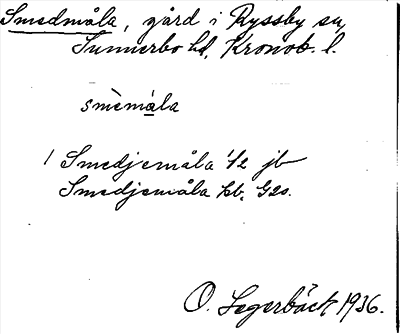 Smedmåla, gård i Ryssby sn,
Sunnerbo hd, Kronob. l.
smèmàla
1 Smedjemåla 1/2 jb
Smedjemåla kb. G20.
O. Segerbäck 1936.